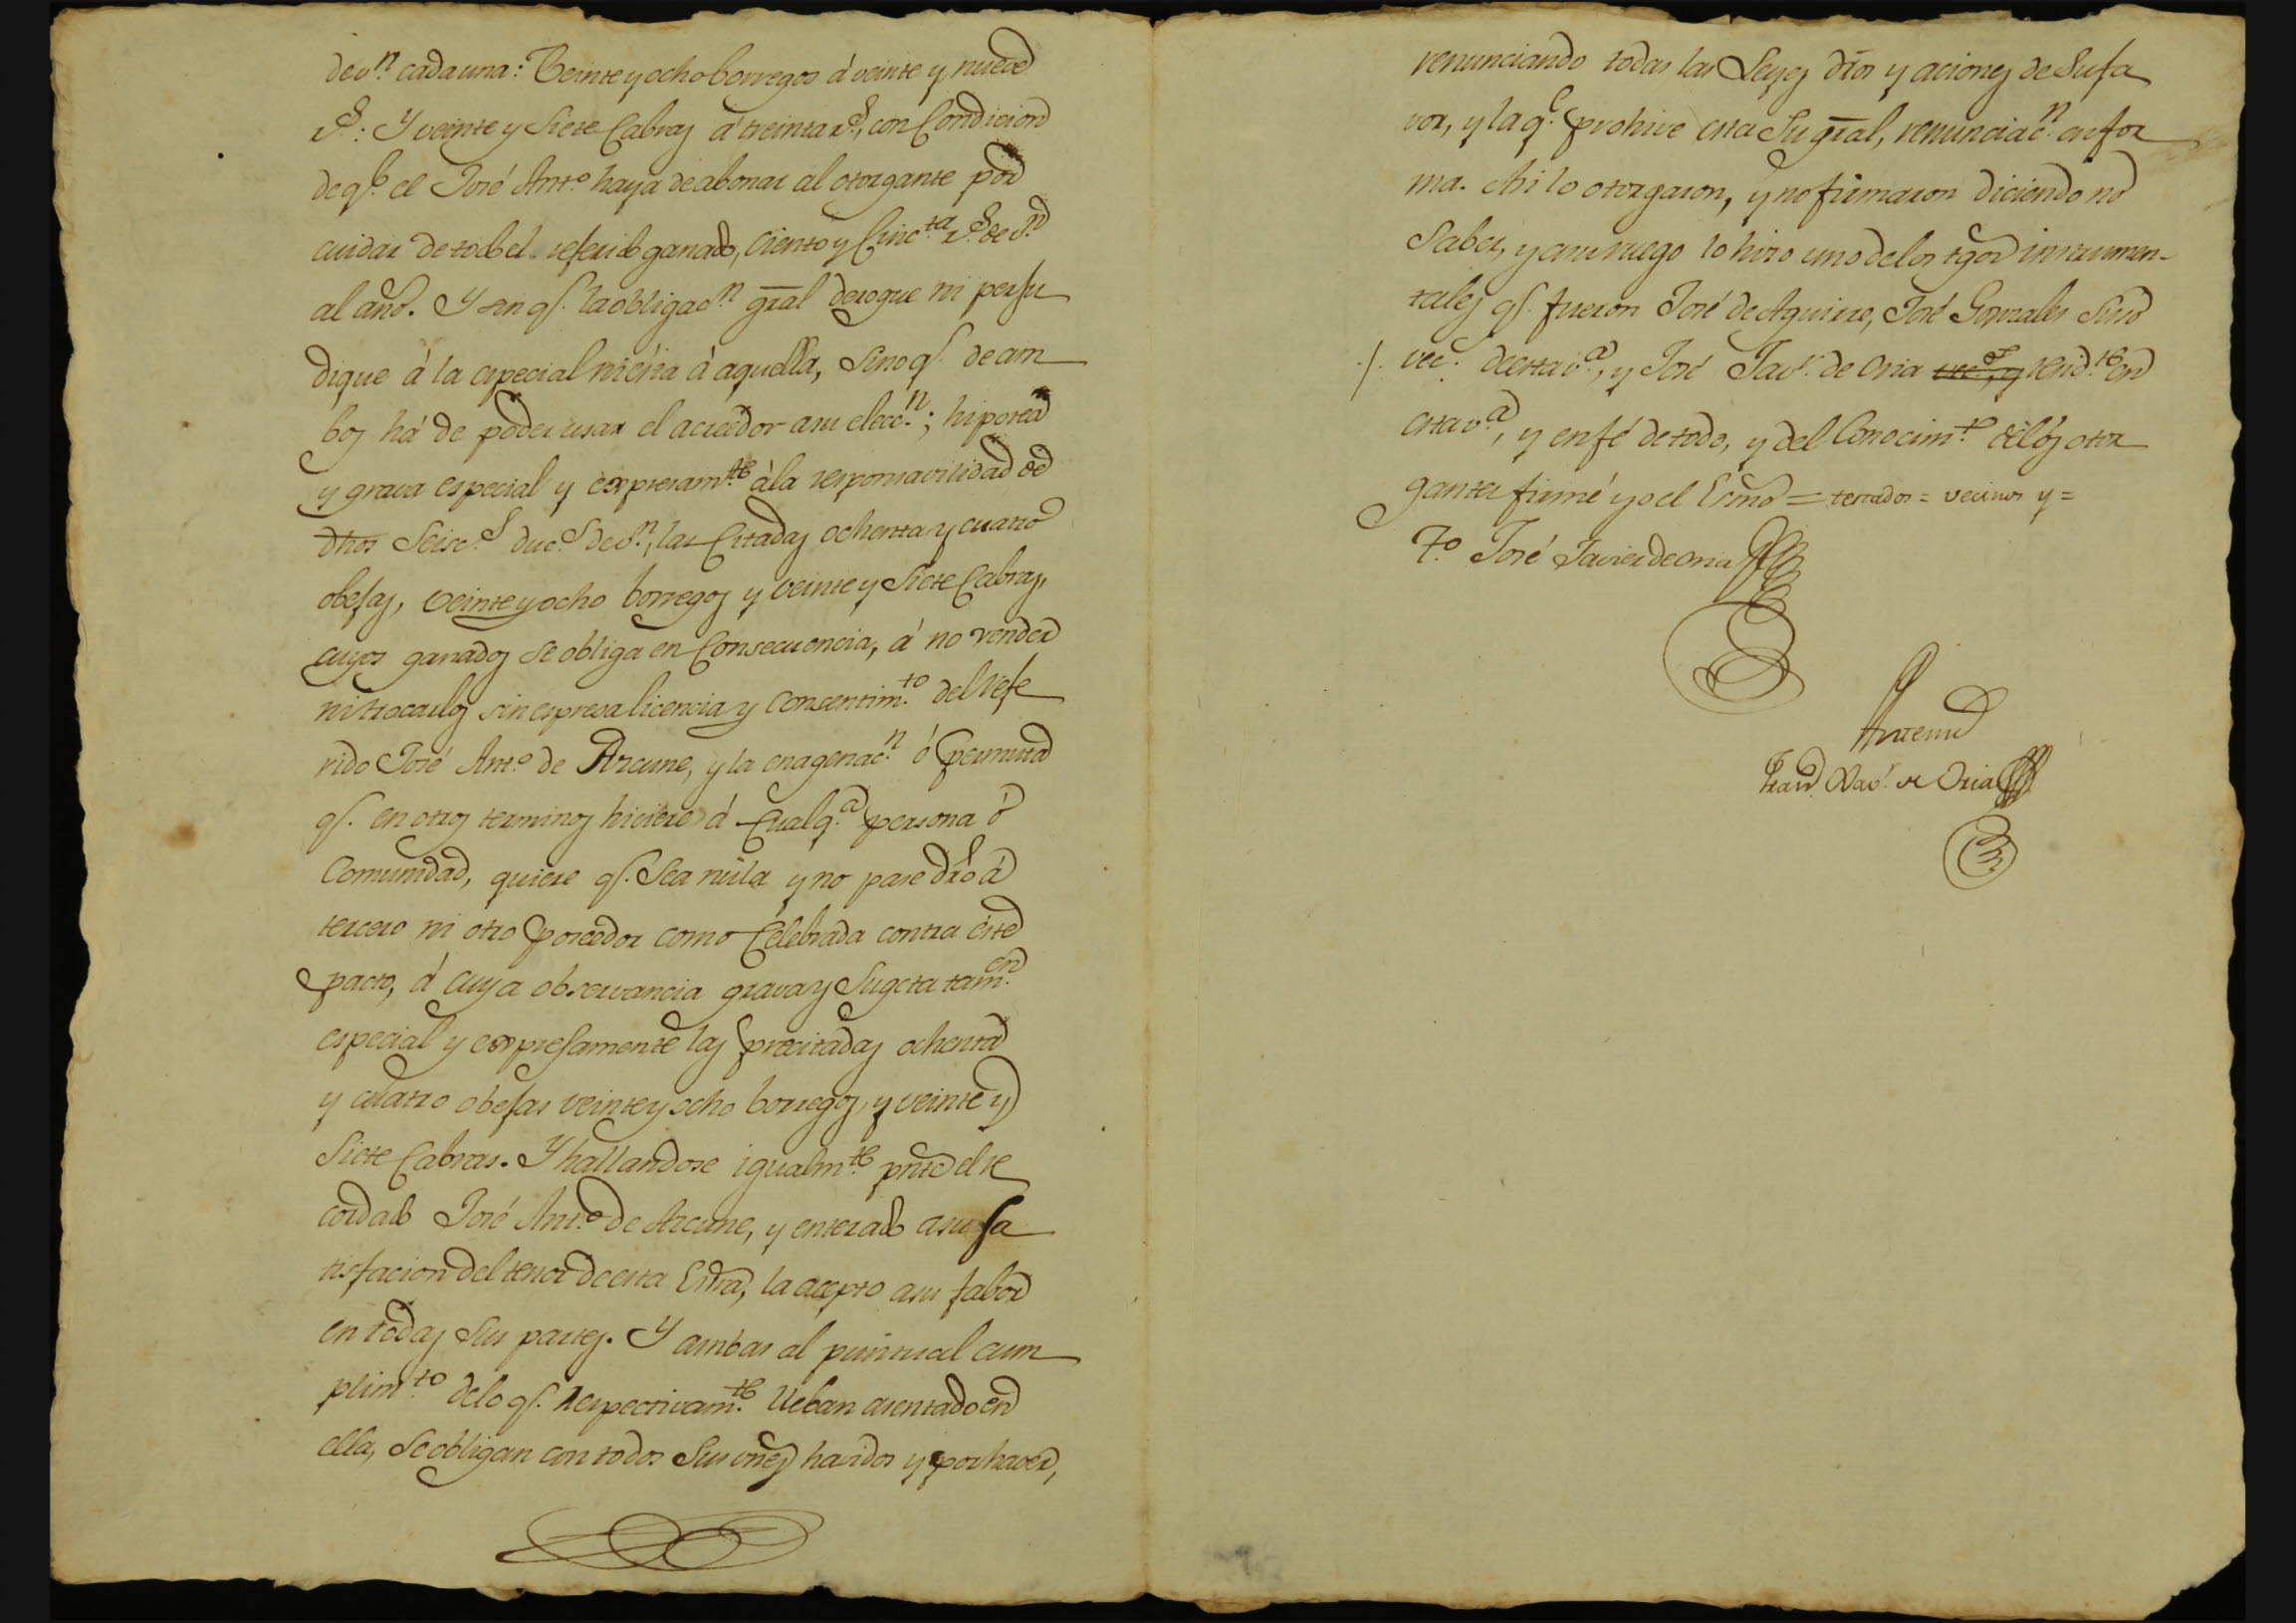 de v.n cada una: Veinte y ocho borregos á veinte y nueve
r.s: Y veinte y Siete Cabras á treinta r.s, con Condicion
de q.e el José Ant.o haya de abonar al otorgante por
cuidar de todo el referido ganado, ciento y Cinc.ta r.s de v.n
al año. Y sin q.e la obligac.n gral derogue ni perju
dique á la especial ni ésta á aquella, Sino q.e de am
bos há de poder usar el acreedor a su elecc.n; hipoteca
y grava especial y expresam.te á la responsavilidad de
dhos Seisc.s duc.s de v.n, las Citadas ochenta y cuatro
obejas, veinte y ocho borregos y veinte y Siete Cabras,
cuyos ganados se obliga en Consecuencia, á no vender
ni trocarlos sin espresa licencia y consentim.to del refe
rido José Ant.o de Arcume, y la enagenac.n ó permuta
q.e en otros terminos hiciere á Cualq.a persona ó
Comunidad, quiere q.e Sea nula y no pase dro á
tercero ni otro poseedor como Celebrada contra este
pacto, á cuya observancia grava y Sugeta tam.en
especial y expresamente las precitadas ochenta
y cuatro obejas veinte y ocho borregos, y veinte y
Siete Cabras. Y hallandose igualm.te pnte el re
cordado José Ant.o de Arcume, y enterado a su sa
tisfacion del tenor de esta Esra, la acepto a su fabor
en todas Sus partes. Y ambas al puntual cum
plim.to de lo q.e respectivam.te lleban asentado en
ella, Se obligan con todos Sus vnes havidos y por haver,
renunciando todas las Leyes dros y aciones de Su fa
vor, y la q.e prohive esta Su gral, renunciac.n en for
ma. Asi lo otorgaron, y no firmaron diciendo no
Saber, y a su ruego lo hizo uno de los tgos instrumen-
tales q.e fueron José de Aguirre, José Gonzales
vec. de esta v.a, y José Jav.r de Oria vec.os, y resid.te en
esta v.a, y en fé de todo, y del Conocim.to de los otor
gantes firmé yo el Esno = testados = vecinos y =
T.o José Javier de Oria
Antemi
Fran.co Xav.r de Oria